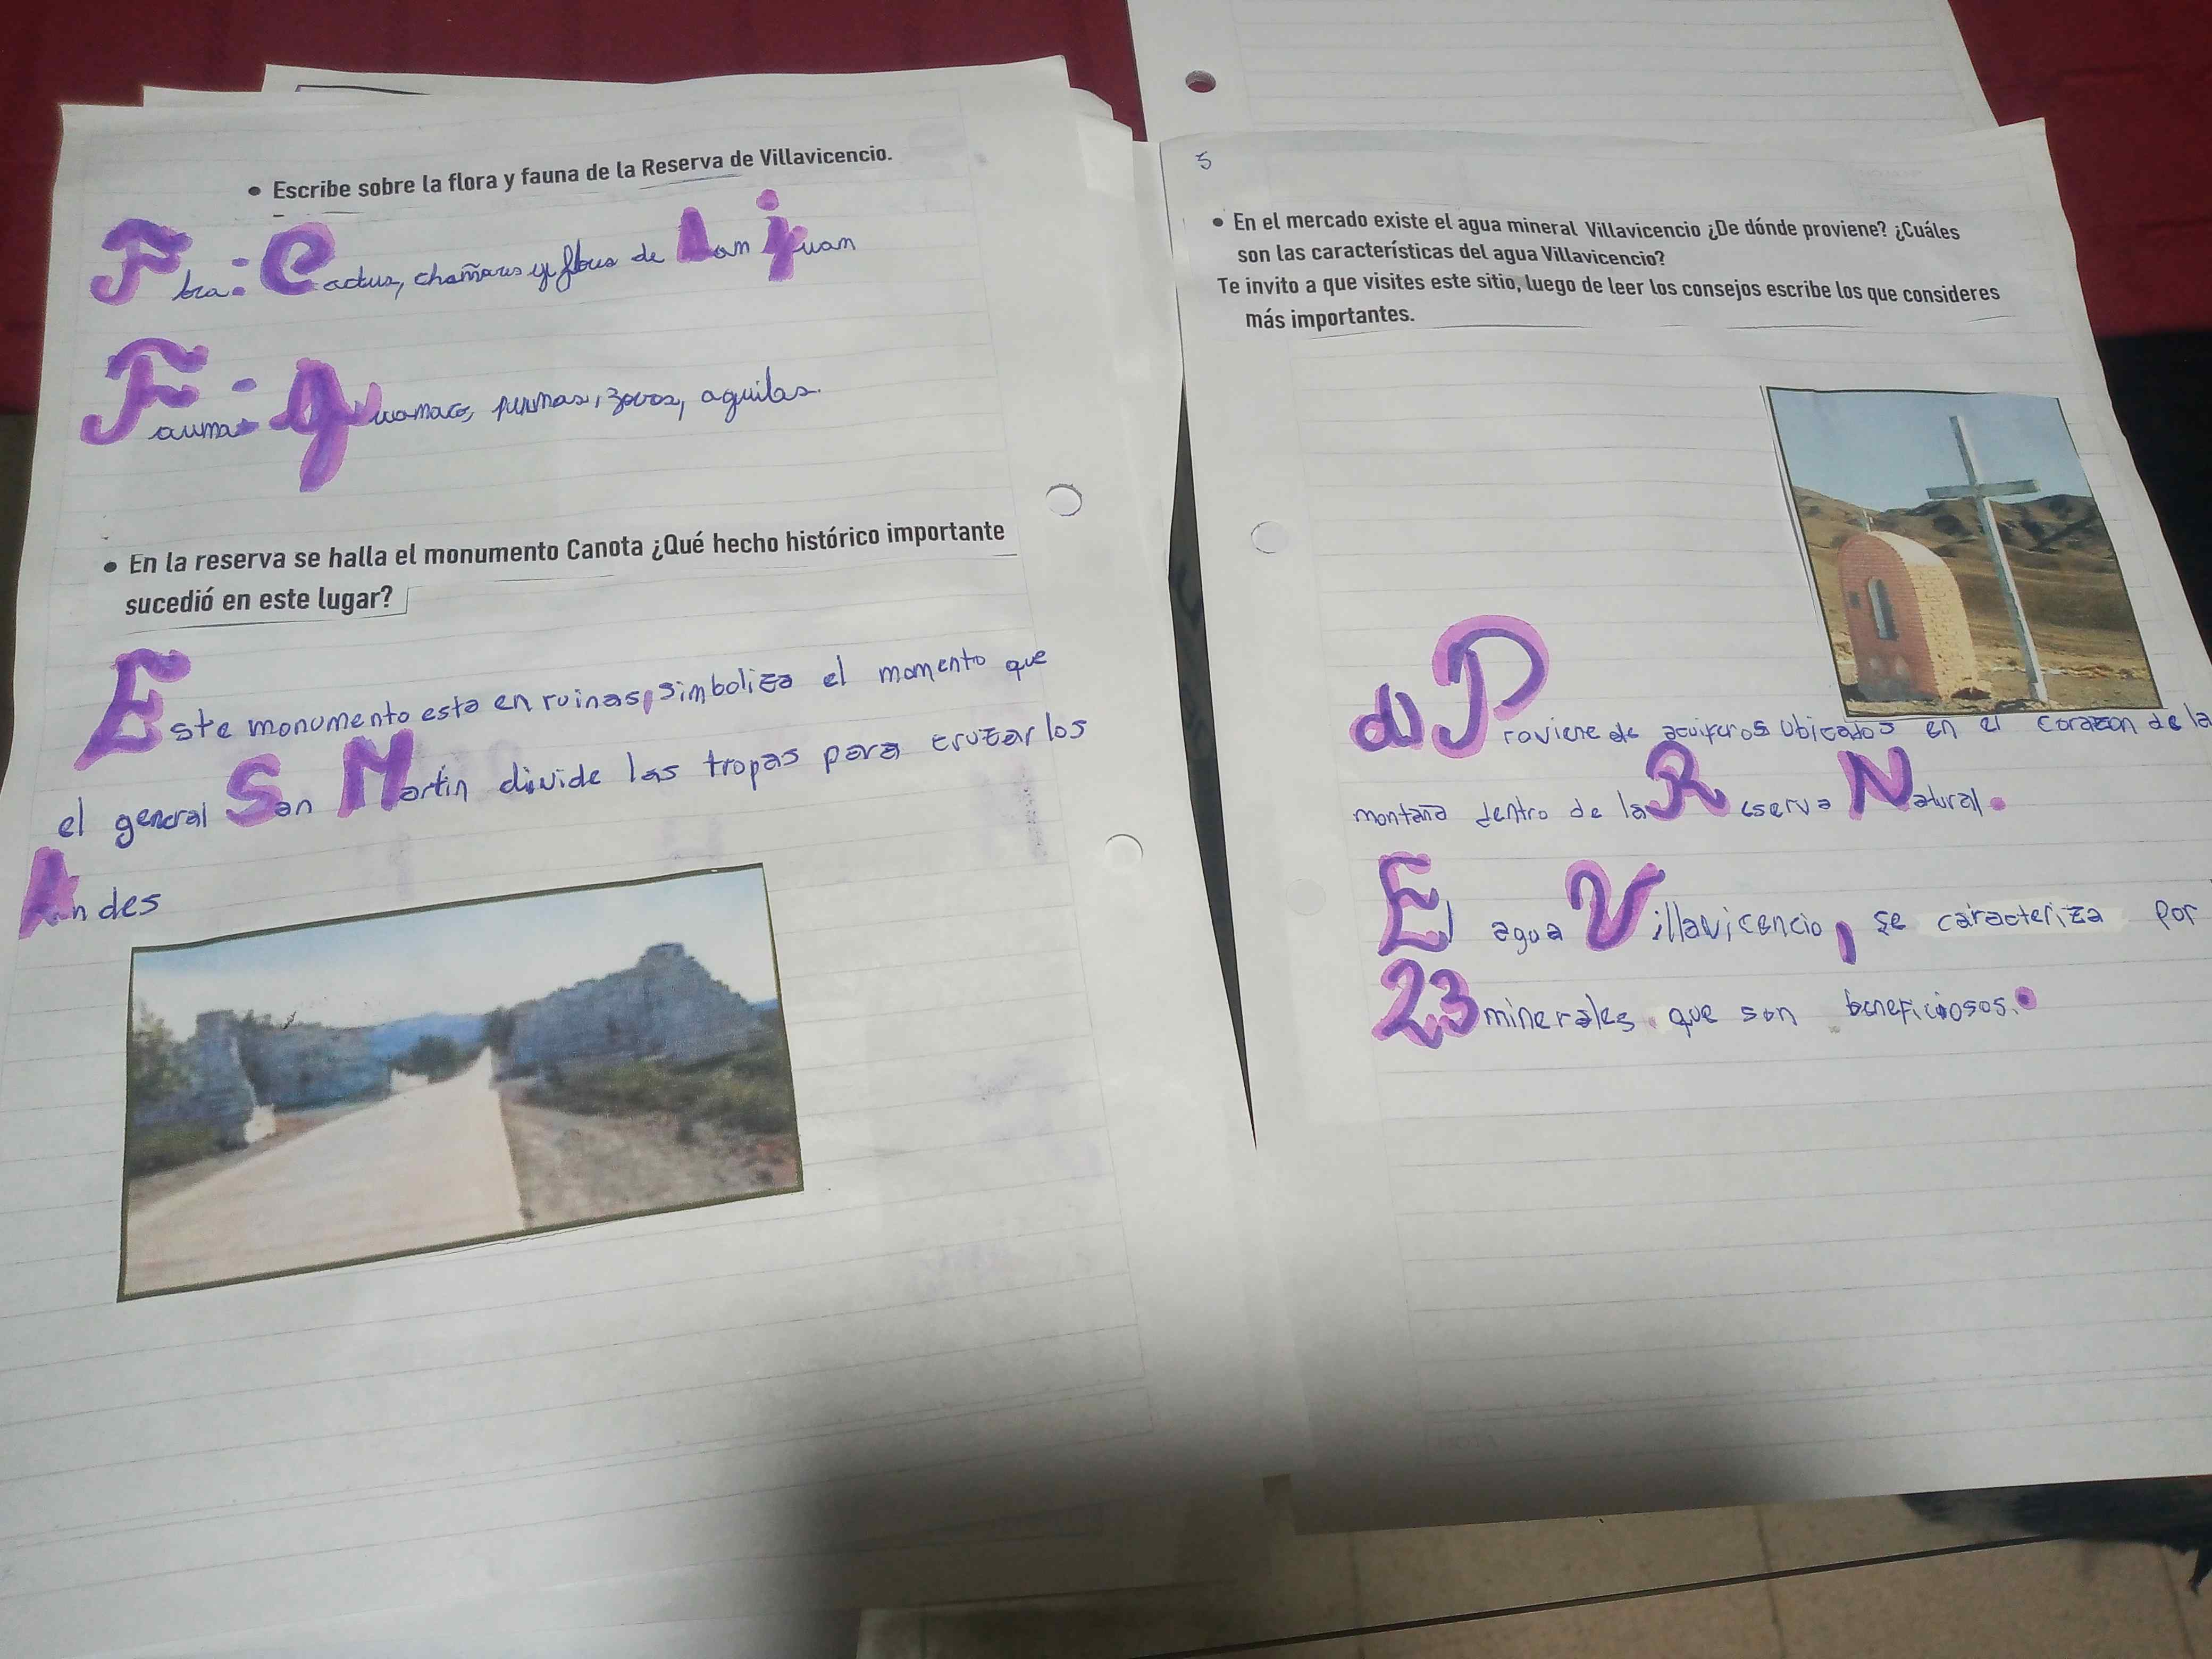 • Escribe sobre la flora y fauna de la Reserva de Villavicencio.
Flora: Cactus, chañares y flores de San Juan
Fauna: Guanaco, pumas, zorros, aguilas.
• En la reserva se halla el monumento Canota ¿Qué hecho histórico importante
sucedió en este lugar?
Este monumento esta en ruinas, simboliza el momento que
el general San Martin divide las tropas para cruzar los
Andes
5
• En el mercado existe el agua mineral Villavicencio ¿De dónde proviene? ¿Cuáles
son las características del agua Villavicencio?
Te invito a que visites este sitio, luego de leer los consejos escribe los que consideres
más importantes.
d) Proviene de acuiferos ubicados en el corazon de la
montaña dentro de la Reserva Natural.
El agua Villavicencio, se caracteriza por
23 minerales que son beneficiosos.